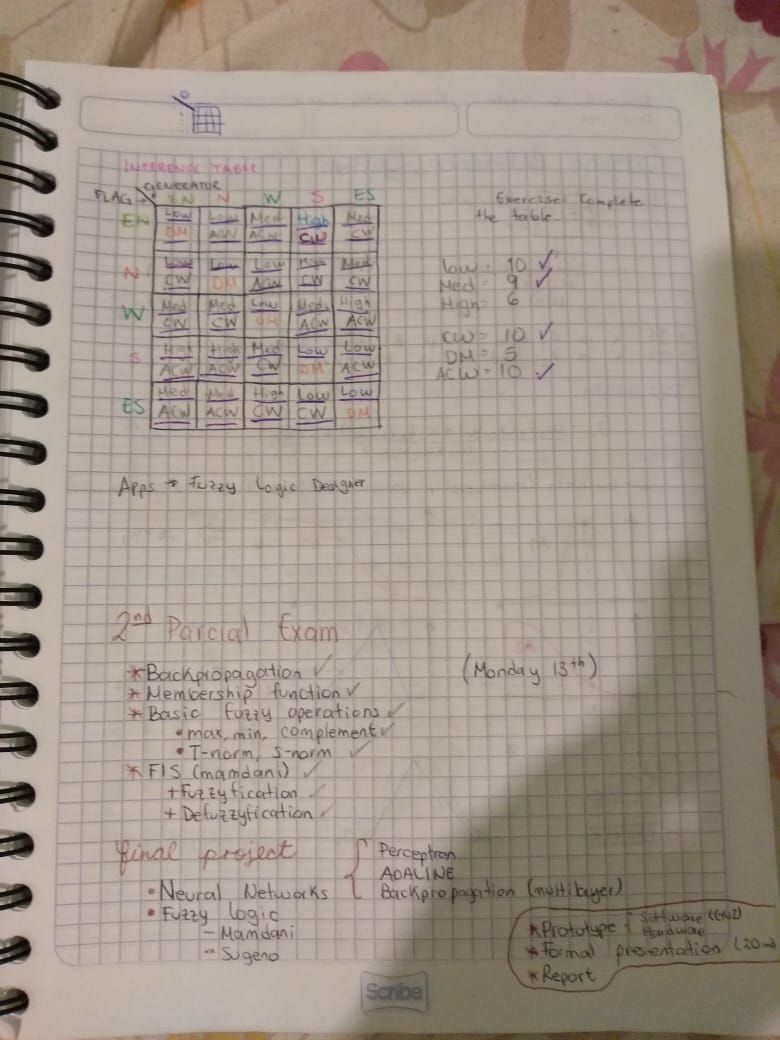 INFERENCE TABLE
GENERATOR
FLAG EN N W S ES
EN Low Low Med High Med
DM ACW ACW CW CW
N Low Low Low Med
CW DM ACW CW CW
W Med Med Low Med High
CW CW DM ACW ACW
S High High Med Low Low
ACW ACW CW DM ACW
ES Med Med High Low Low
ACW ACW CW CW DM
Exercise: Complete
the table.
Low = 10 ✓
Med = 9 ✓
High = 6
CW = 10 ✓
DM = 5
ACW = 10 ✓
Apps → Fuzzy Logic Designer
2nd Parcial Exam
(Monday 13th)
* Backpropagation ✓
* Membership function ✓
* Basic fuzzy operations ✓
• max, min, complement ✓
• T-norm, S-norm ✓
* FIS (mamdani) ✓
+ Fuzzyfication ✓
+ Defuzzyfication ✓
final project
• Neural Networks { Perceptron
ADALINE
Backpropagation (multilayer)
• Fuzzy logic
- Mamdani
- Sugeno
* Prototype { Software
Hardware
* Formal presentation (20
* Report
Scribe